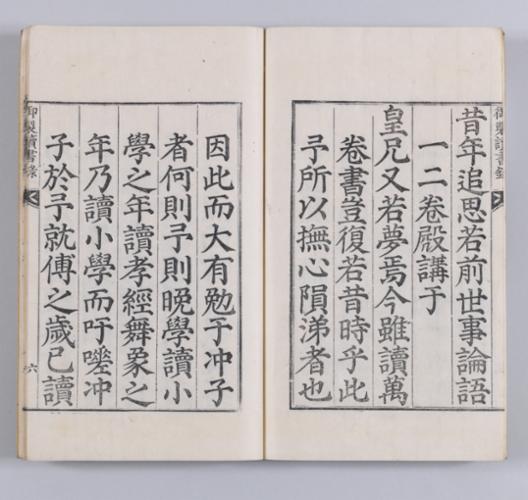 御製讀書錄
昔年追思若前世事論語
一二卷殿講于
皇兄又若夢焉今雖讀萬
卷書豈復若昔時乎此
予所以撫心隕涕者也
因此而大有勉于冲子
者何則予則晚學讀小
學之年讀孝經舞象之
年乃讀小學而吁嗟冲
子於予就傅之歲已讀
御製讀書錄
六